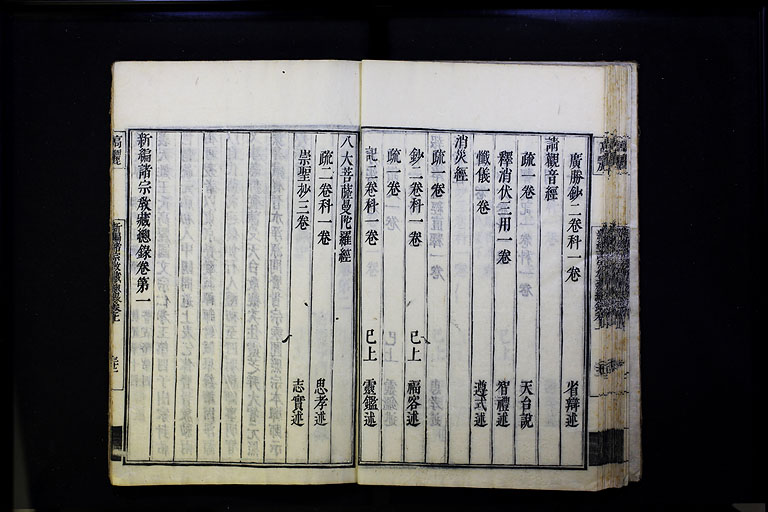 廣勝鈔二卷科一卷　省辯述
請觀音經
疏一卷　天台說
釋消伏三用一卷　智禮述
懺儀一卷　遵式述
消災經
疏一卷
鈔二卷科一卷　已上　福客述
疏一卷
記二卷科一卷　已上　靈鑑述
八大菩薩曼陀羅經
疏二卷科一卷　思孝述
崇聖抄三卷　志實述
新編諸宗教藏總錄卷第一
高麗　新編諸宗教藏總錄卷上